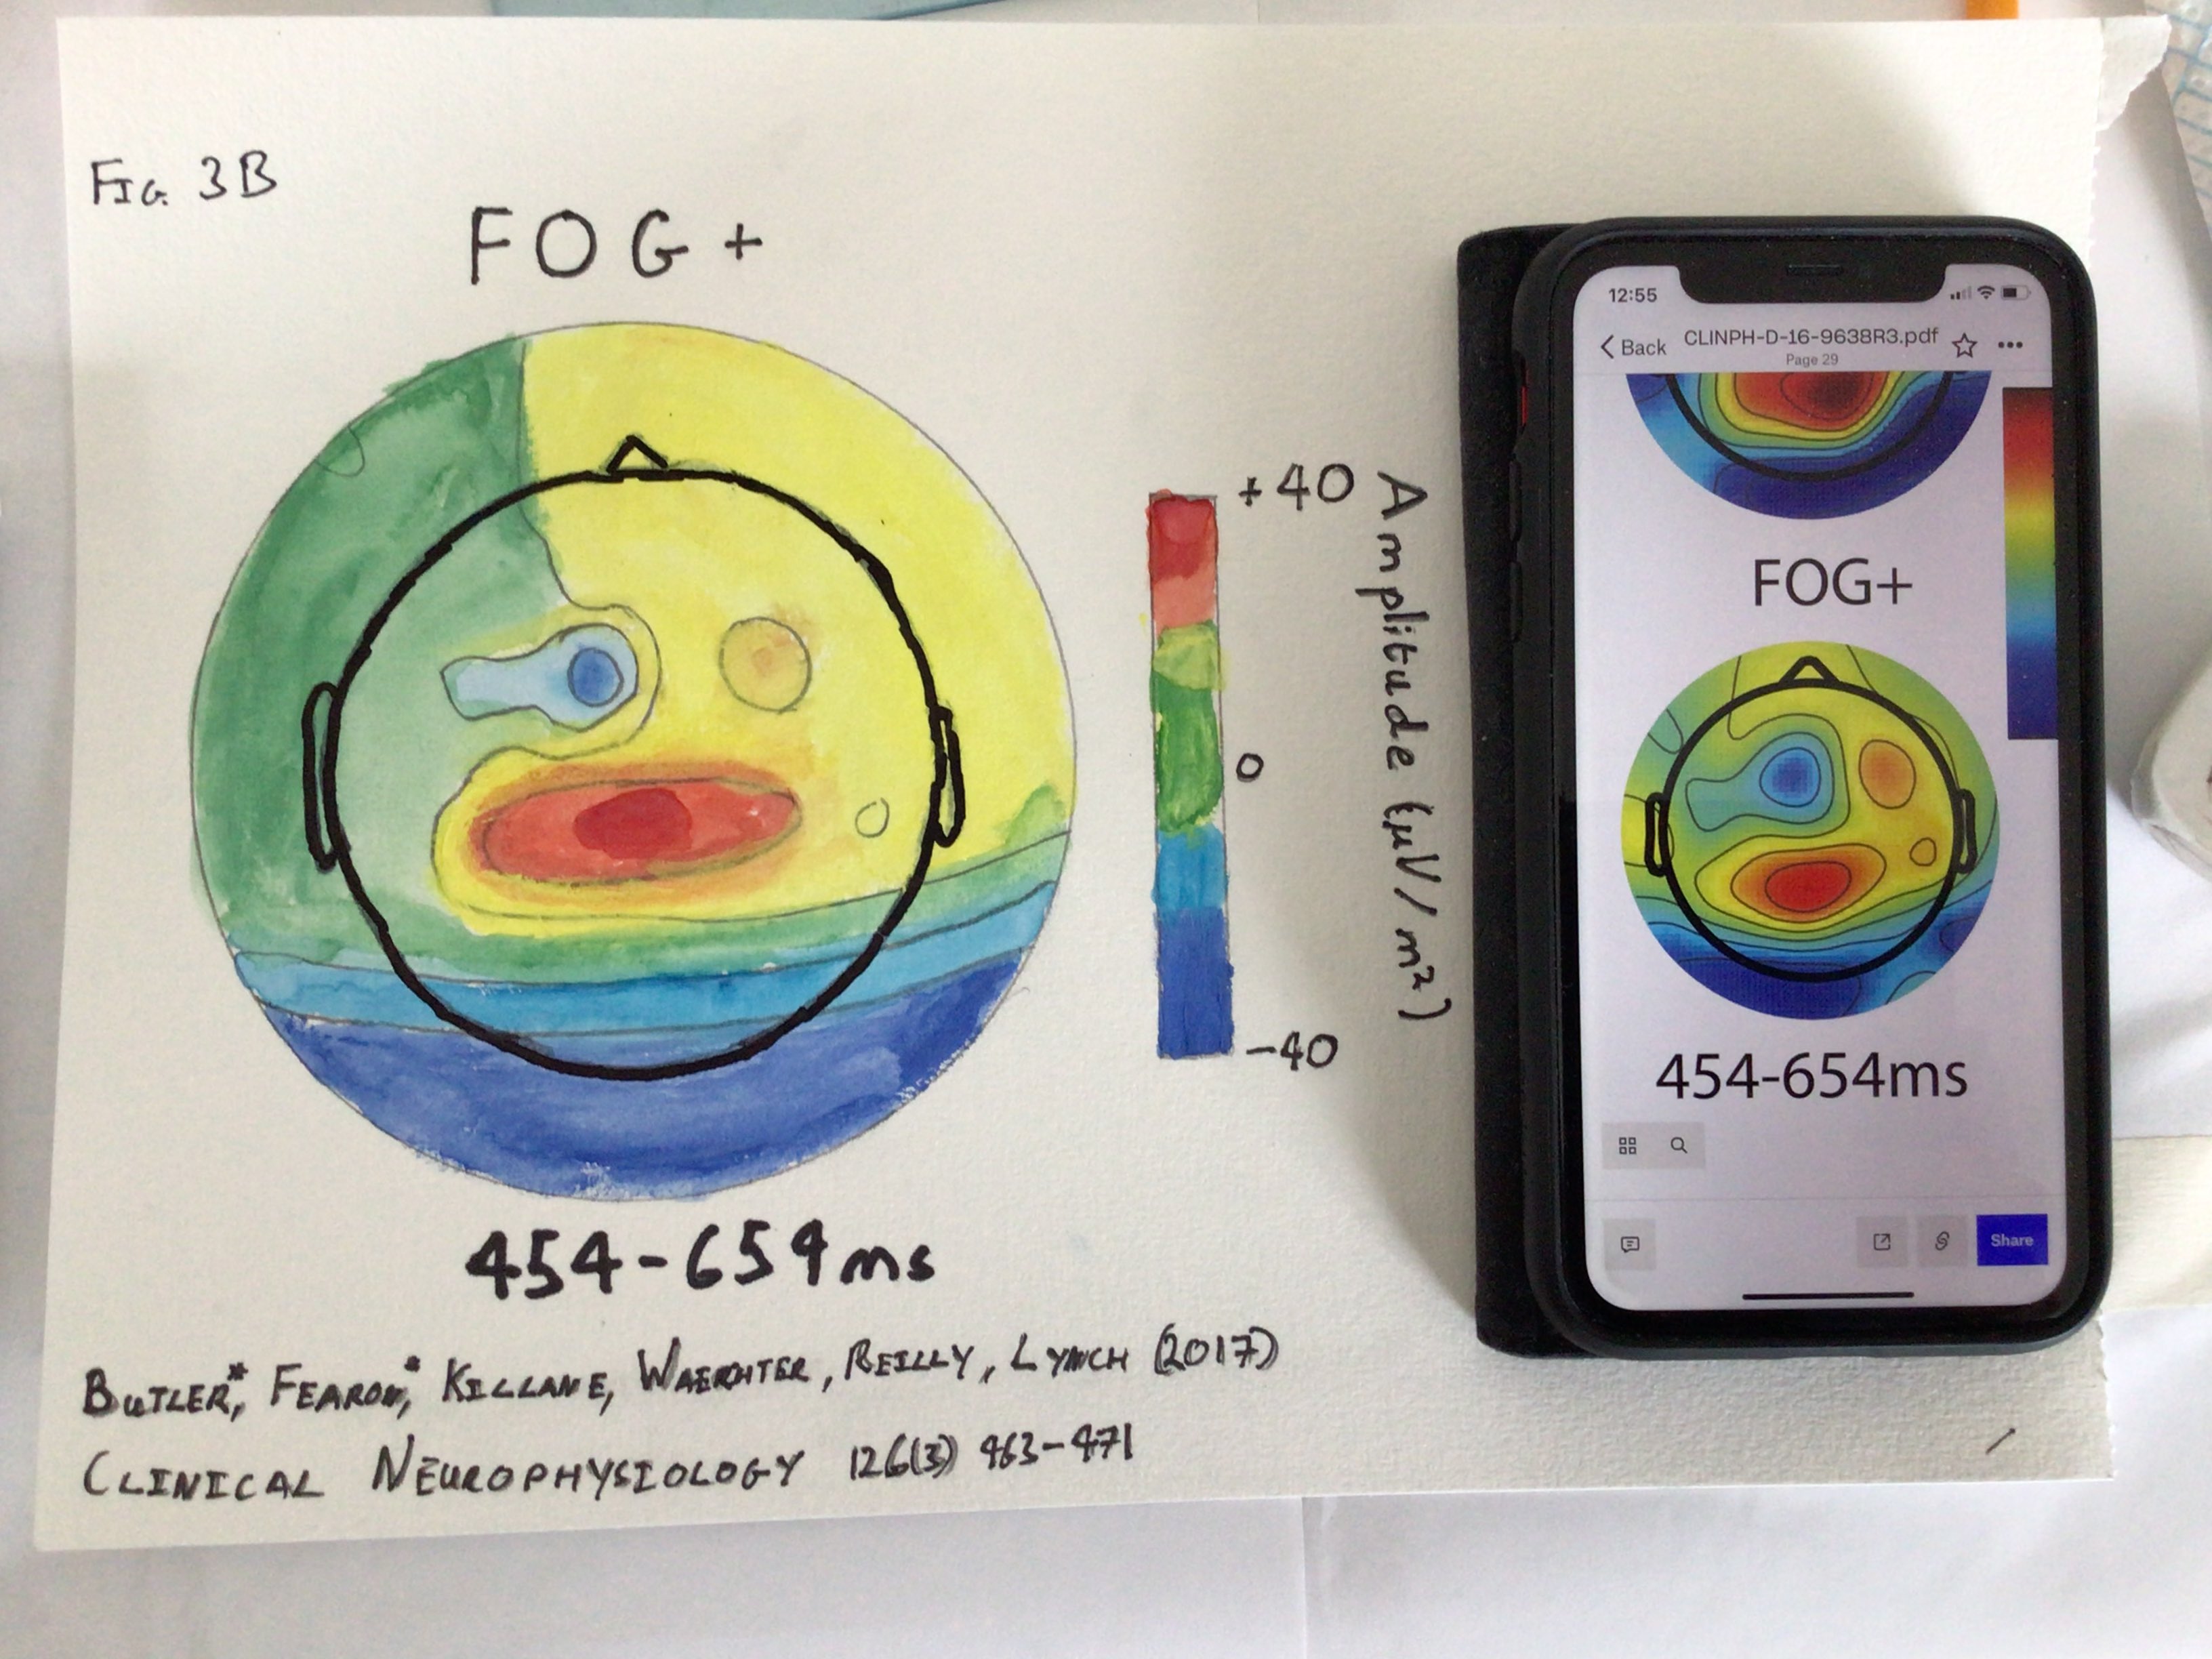 FIG. 3B
FOG+
+40
0
-40
Amplitude (μV/m²)
454-654ms
BUTLER*, FEARON*, KILLANE, WAECHTER, REILLY, LYNCH (2017)
CLINICAL NEUROPHYSIOLOGY 126(3) 463-471
12:55
Back
CLINPH-D-16-9638R3.pdf
Page 29
FOG+
454-654ms
Share